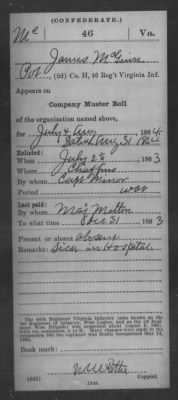 (CONFEDERATE.)
Mc 46 Va.
James McGinn
Pvt., (2d) Co. H, 46 Reg't Virginia Inf.
Appears on
Company Muster Roll
of the organization named above,
for July & Aug, 1864.
dated Aug 31 1864
Enlisted:
When July 25, 1863
Where Chaffins
By whom Capt Minor
Period war
Last paid:
By whom Maj Melton
To what time Dec 31, 1863
Present or absent Absent
Remarks: Sick in Hospital
The 46th Regiment Virginia Infantry (also known as the
1st Regiment of Infantry, Wise Legion, and as the 2d Regi-
ment Wise Brigade) was organized about August
Book mark:
(642) Copyist.